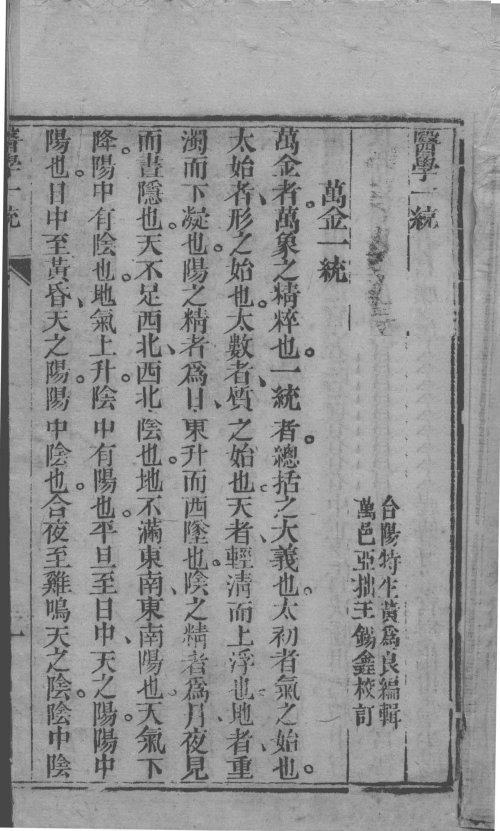 醫學一統
台陽特生黃爲良編輯
萬邑亞拙王錫鑫校訂
萬金一統
萬金者萬象之精粹也一統者總括之大義也太初者氣之始也
太始者形之始也太數者質之始也天者輕清而上浮也地者重
濁而下凝也陽之精者爲日東升而西墜也陰之精者爲月夜見
而晝隱也天不足西北西北陰也地不滿東南東南陽也天氣下
降陽中有陰也地氣上升陰中有陽也平旦至日中天之陽陽中
陽也日中至黃昏天之陽陽中陰也合夜至雞鳴天之陰陰中陰
醫學一統
一